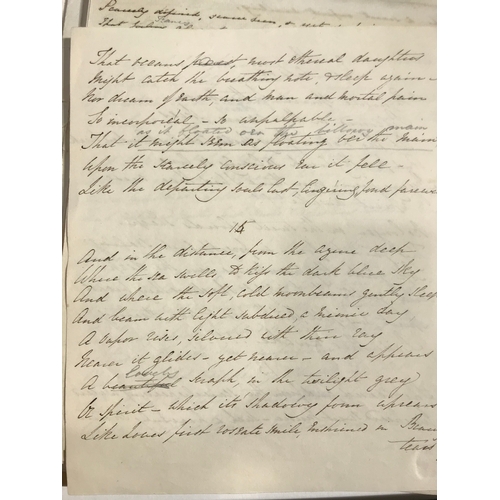 Scarcely defined,
That
That oceans finest, most ethereal daughters
Might catch the breathing note, & sleep again -
Nor dream of Earth, and man and mortal pain
So incorporeal - So unpalpable -
as it floated o'er the billowy main
That it might seem as floating o'er the main
Upon the scarcely conscious Ear it fell -
Like the departing souls last, lingering, fond farewe
15
And in the distance, from the azure deep
Where the sea swells to kiss the dark blue sky
And where the soft, cold moonbeams gently sleep
And beam with light subdued, a mimic day
A vapor rises, silvered with their ray
Nearer it glides - yet nearer - and appears
A beautiful Seraph, in the twilight grey
Or spirit - which its shadowy form uprears
Like Loves first roseate smile, enshrined in Beau
tears